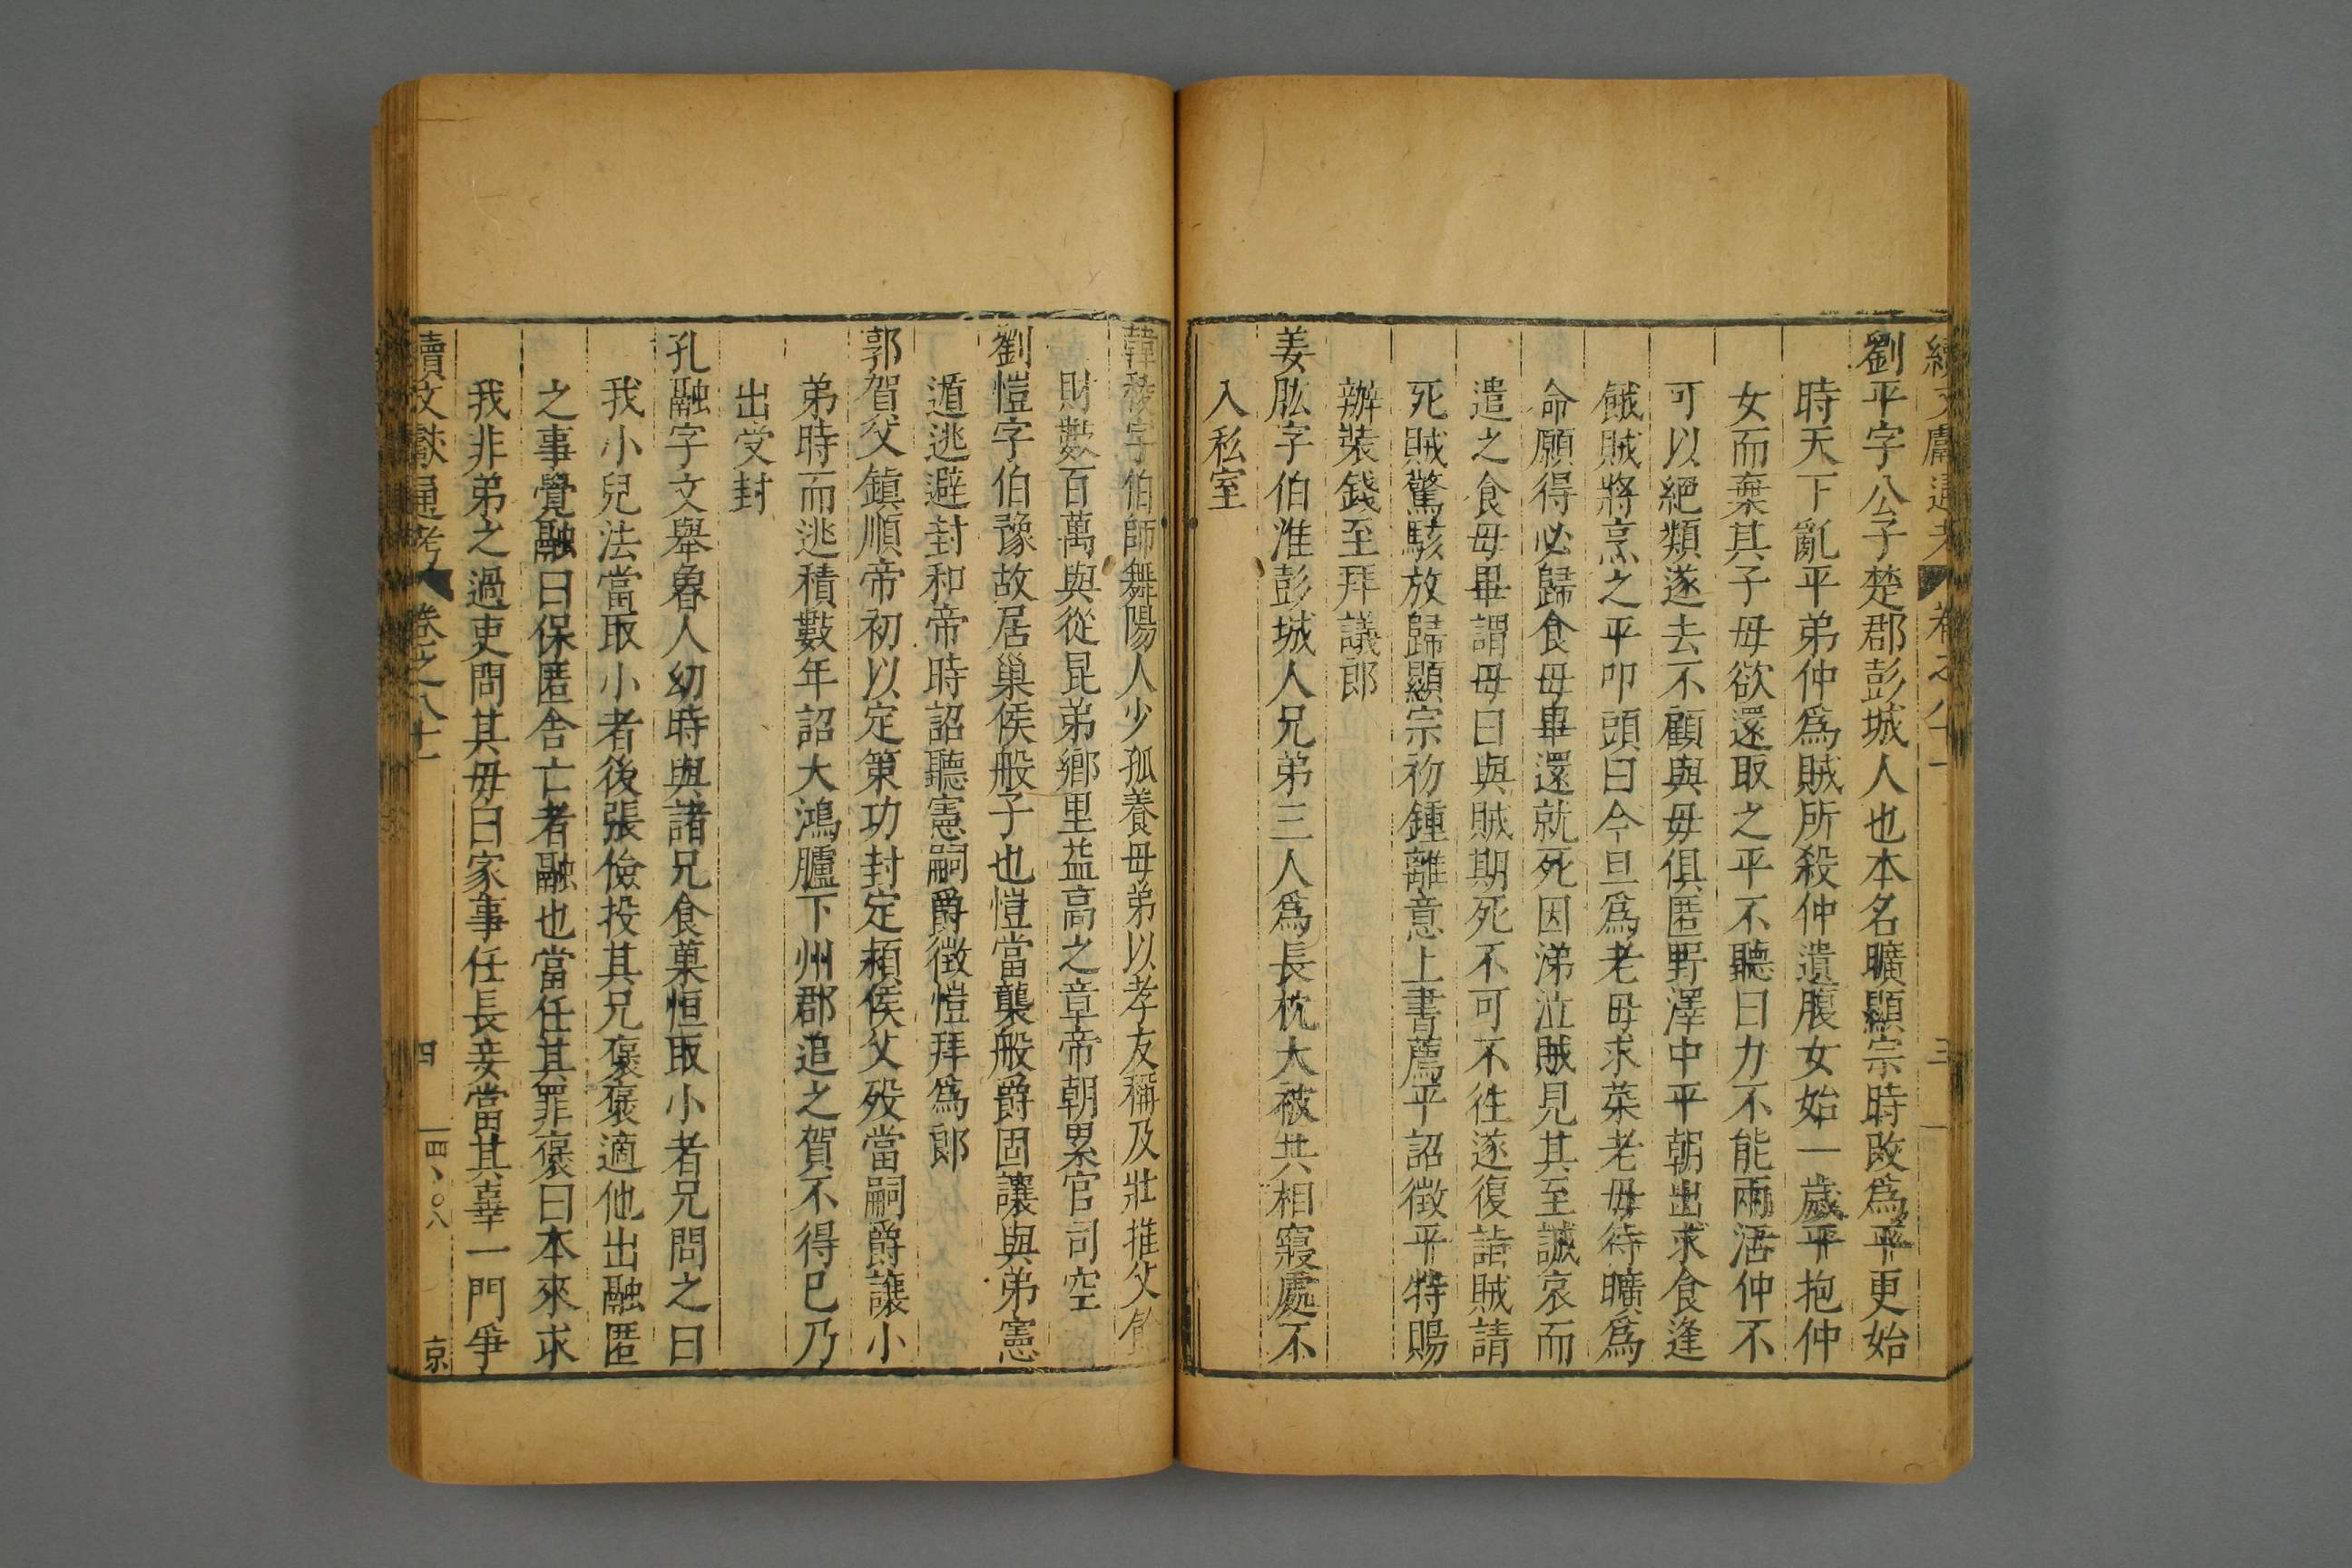 續文獻通考 卷之八十一 三
劉平字公子楚郡彭城人也本名曠顯宗時改爲平更始
時天下亂平弟仲爲賊所殺仲遺腹女始一歲平抱仲
女而棄其子母欲還取之平不聽曰力不能兩活仲不
可以絕類遂去不顧與母俱匿野澤中平朝出求食逢
餓賊將烹之平叩頭曰今旦爲老母求菜老母待曠爲
命願得必歸食母畢還就死因涕泣賊見其至誠哀而
遣之食母畢謂母曰與賊期死不可不徃遂復詣賊請
死賊驚駭放歸顯宗初鍾離意上書薦平詔徵平特賜
辦裝錢至拜議郎
姜肱字伯淮彭城人兄弟三人爲長枕大被共相寢處不
入私室
韓稜字伯師舞陽人少孤養母弟以孝友稱及壯推父餘
財數百萬與從昆弟鄉里益高之章帝朝累官司空
劉愷字伯豫故居巢侯般子也愷當襲般爵固讓與弟憲
遁逃避封和帝時詔聽憲嗣爵徵愷拜爲郎
郭賀父鎮順帝初以定策功封定頴侯父殁當嗣爵讓小
弟時而逃積數年詔大鴻臚下州郡追之賀不得已乃
出受封
孔融字文舉魯人幼時與諸兄食菓恒取小者兄問之曰
我小兒法當取小者後張儉投其兄褒褒適他出融匿
之事覺融曰保匿舍亡者融也當任其罪褒曰本來求
我非弟之過吏問其母曰家事任長妾當其辜一門爭
續文獻通考 卷之八十一 四 一四、〇八 京